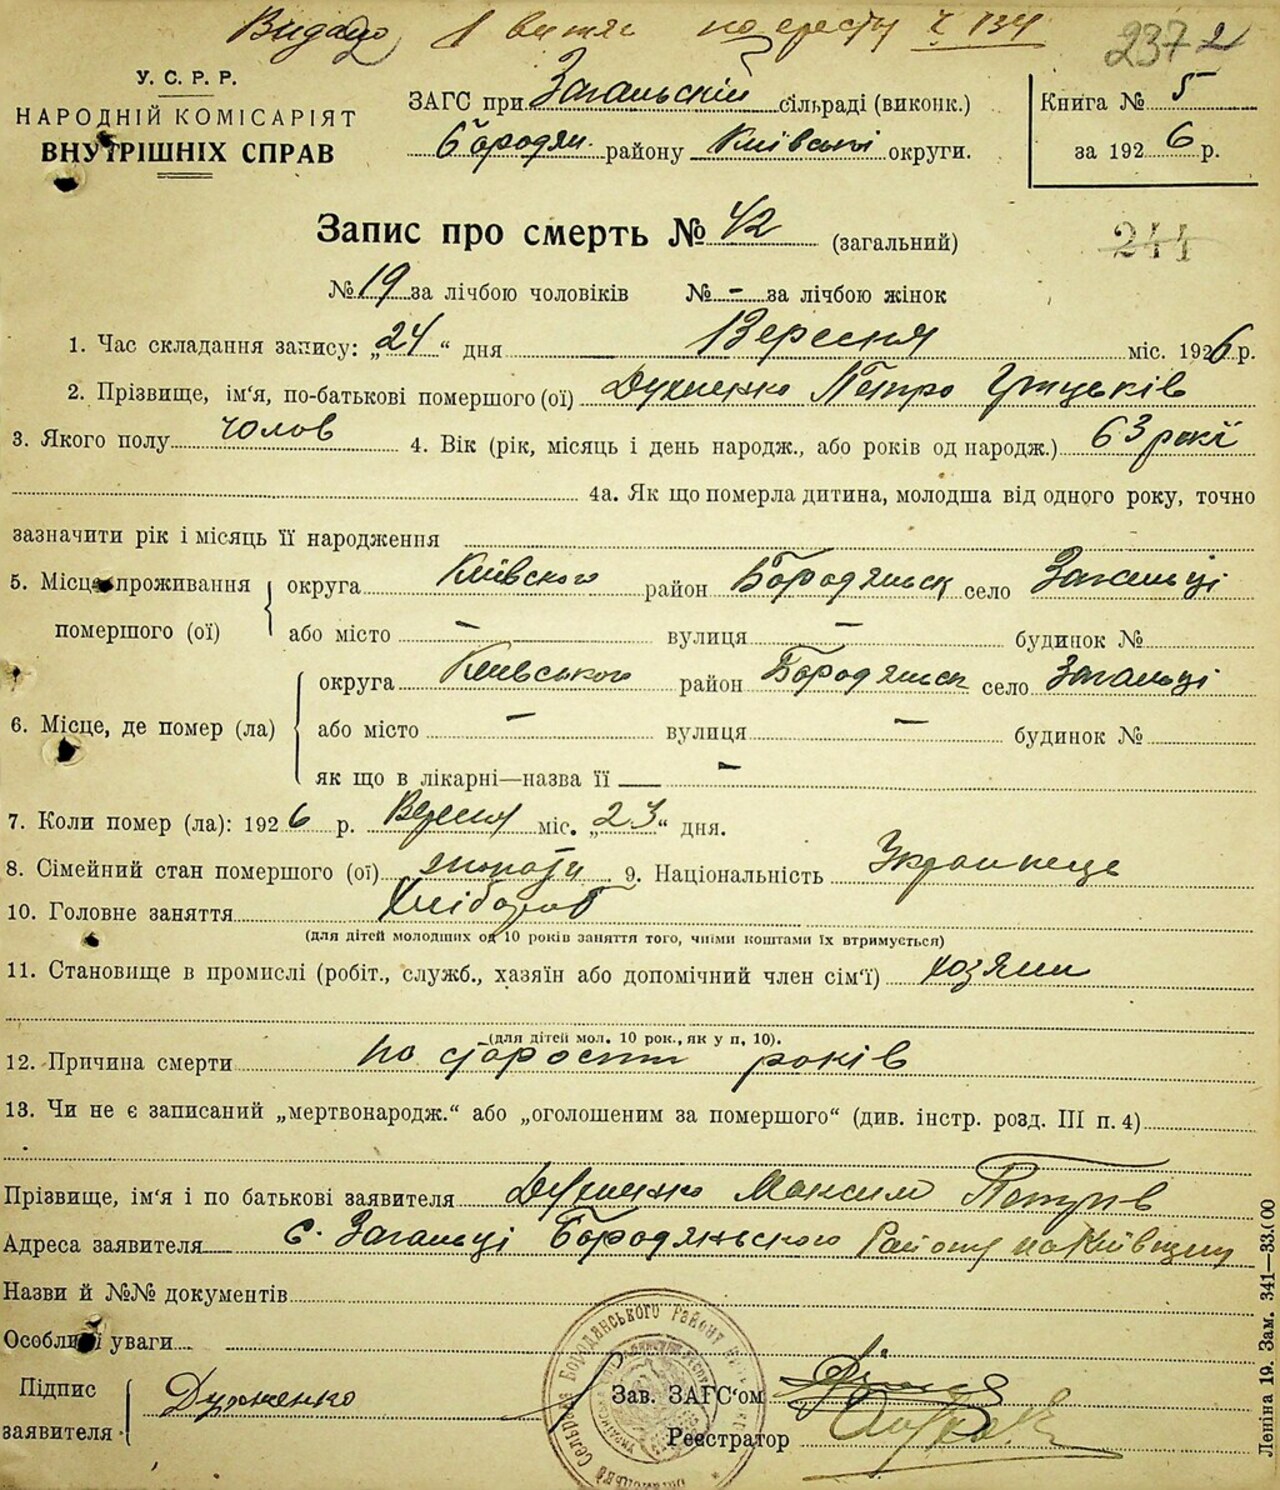 Видано 1 витяг по реєстру ч 134
237 2
У. С. Р. Р.
НАРОДНІЙ КОМІСАРІЯТ
ВНУТРІШНІХ СПРАВ
ЗАГС при Загальській сільраді (виконк.)
Бородян. району Київській округи.
Книга № 5
за 1926 р.
Запис про смерть № 42 (загальний)
244
№ 19 за лічбою чоловіків № - за лічбою жінок
1. Час складання запису: „24“ дня Вересня міс. 1926 р.
2. Прізвище, ім'я, по-батькові помершого (ої) Петро Грицьків
3. Якого полу чолов 4. Вік (рік, місяць і день народж., або років од народж.) 63 рокі
4а. Як що померла дитина, молодша від одного року, точно
зазначити рік і місяць її народження
5. Місце проживання помершого (ої) округа Київского район Бородянськ село Загальці
або місто — вулиця — будинок №
6. Місце, де помер (ла) округа Київського район Бородянськ село Загальці
або місто — вулиця — будинок №
як що в лікарні—назва її —
7. Коли помер (ла): 1926 р. Вересня міс. „23“ дня.
8. Сімейний стан помершого (ої) 9. Національність Українець
10. Головне заняття Хлібороб
(для дітей молодших од 10 років заняття того, чиїми коштами їх втримується)
11. Становище в промислі (робіт., служб., хазяїн або допомічний член сім'ї) хозяин
(для дітей мол. 10 рок., як у п, 10).
12. Причина смерти по старости років
13. Чи не є записаний „мертвонародж.“ або „оголошеним за помершого“ (див. інстр. розд. III п. 4)
Прізвище, ім'я і по батькові заявителя Максим Петрів
Адреса заявителя с. Загальці Бородянського Району на Київщини
Назви й №№ документів
Особливі уваги
Підпис заявителя
Зав. ЗАГС'ом
Реєстратор
Бородянського району
Леніна 19. Зам. 341—33.000